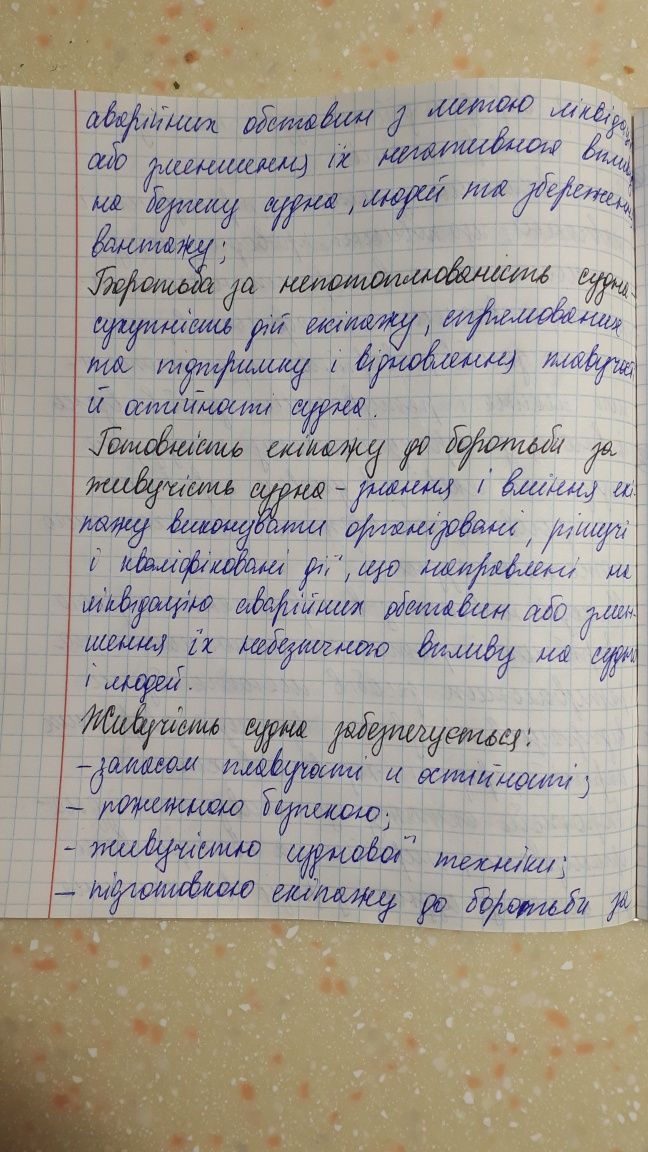 аварійних обставин з метою ліквідації
або зменшення їх негативного впливу
на безпеку судна, людей та збереження
вантажу;
Боротьба за непотоплюваність судна -
сукупність дій екіпажу, спрямованих
на підтримку і відновлення плавучості
й остійності судна.
Готовність екіпажу до боротьби за
живучість судна - знання і вміння екі-
пажу виконувати організовані, рішучі
і кваліфіковані дії, що направлені на
ліквідацію аварійних обставин або змен-
шення їх небезпечного впливу на судно
і людей.
Живучість судна забезпечується:
- запасом плавучості и остійності;
- пожежною безпекою;
- живучістю суднової техніки;
- підготовкою екіпажу до боротьби за